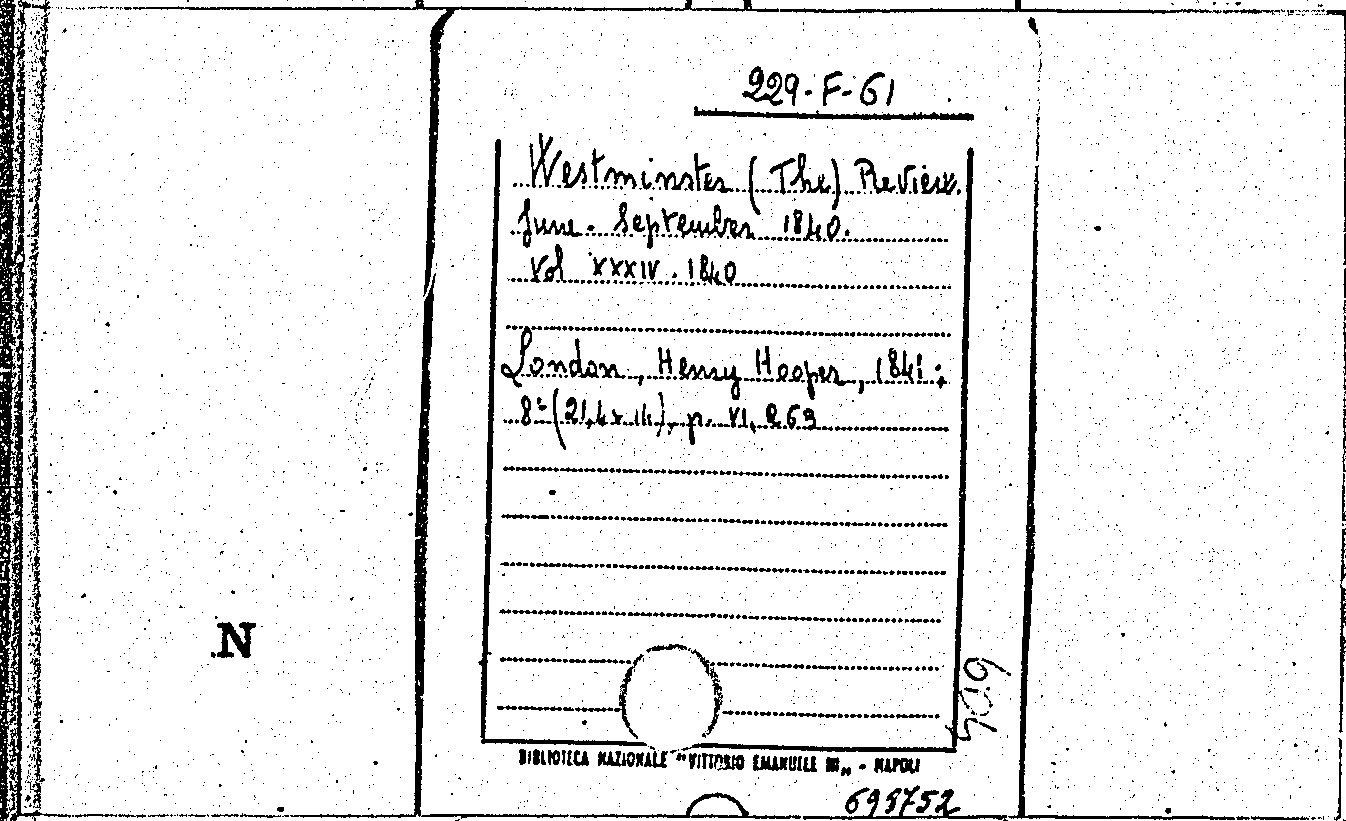 229-F-61
Westminster (The) Review.
June - September 1840.
Vol XXXIV. 1840
London, Henry Hooper, 1841;
8° (21,4 x 14), p. VI, 263
N
BIBLIOTECA NAZIONALE "VITTORIO EMANUELE III" - NAPOLI